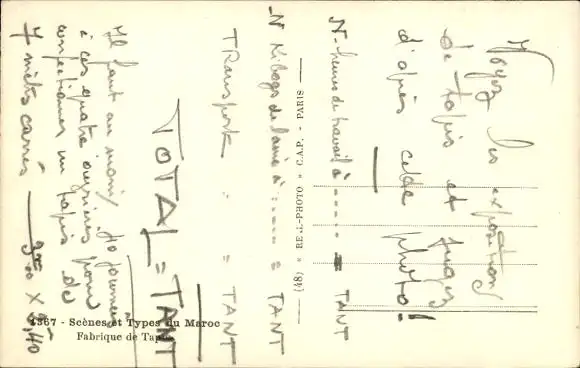 Voyez les expositions
de tapis et jugez
d'après cette photo!
N- heures de travail à ----- = TANT
N Kilogs de laine à ------ = TANT
TRansport " = TANT
TOTAL = TANT
Il faut au moins 70 journées
à ces quatre ouvrières pour
confectionner un tapis de
7 mètres carrés 3.00 X 2,40
(48) « REAL-PHOTO » C.A.P. - PARIS
4367 - Scènes et Types du Maroc
Fabrique de Tapis